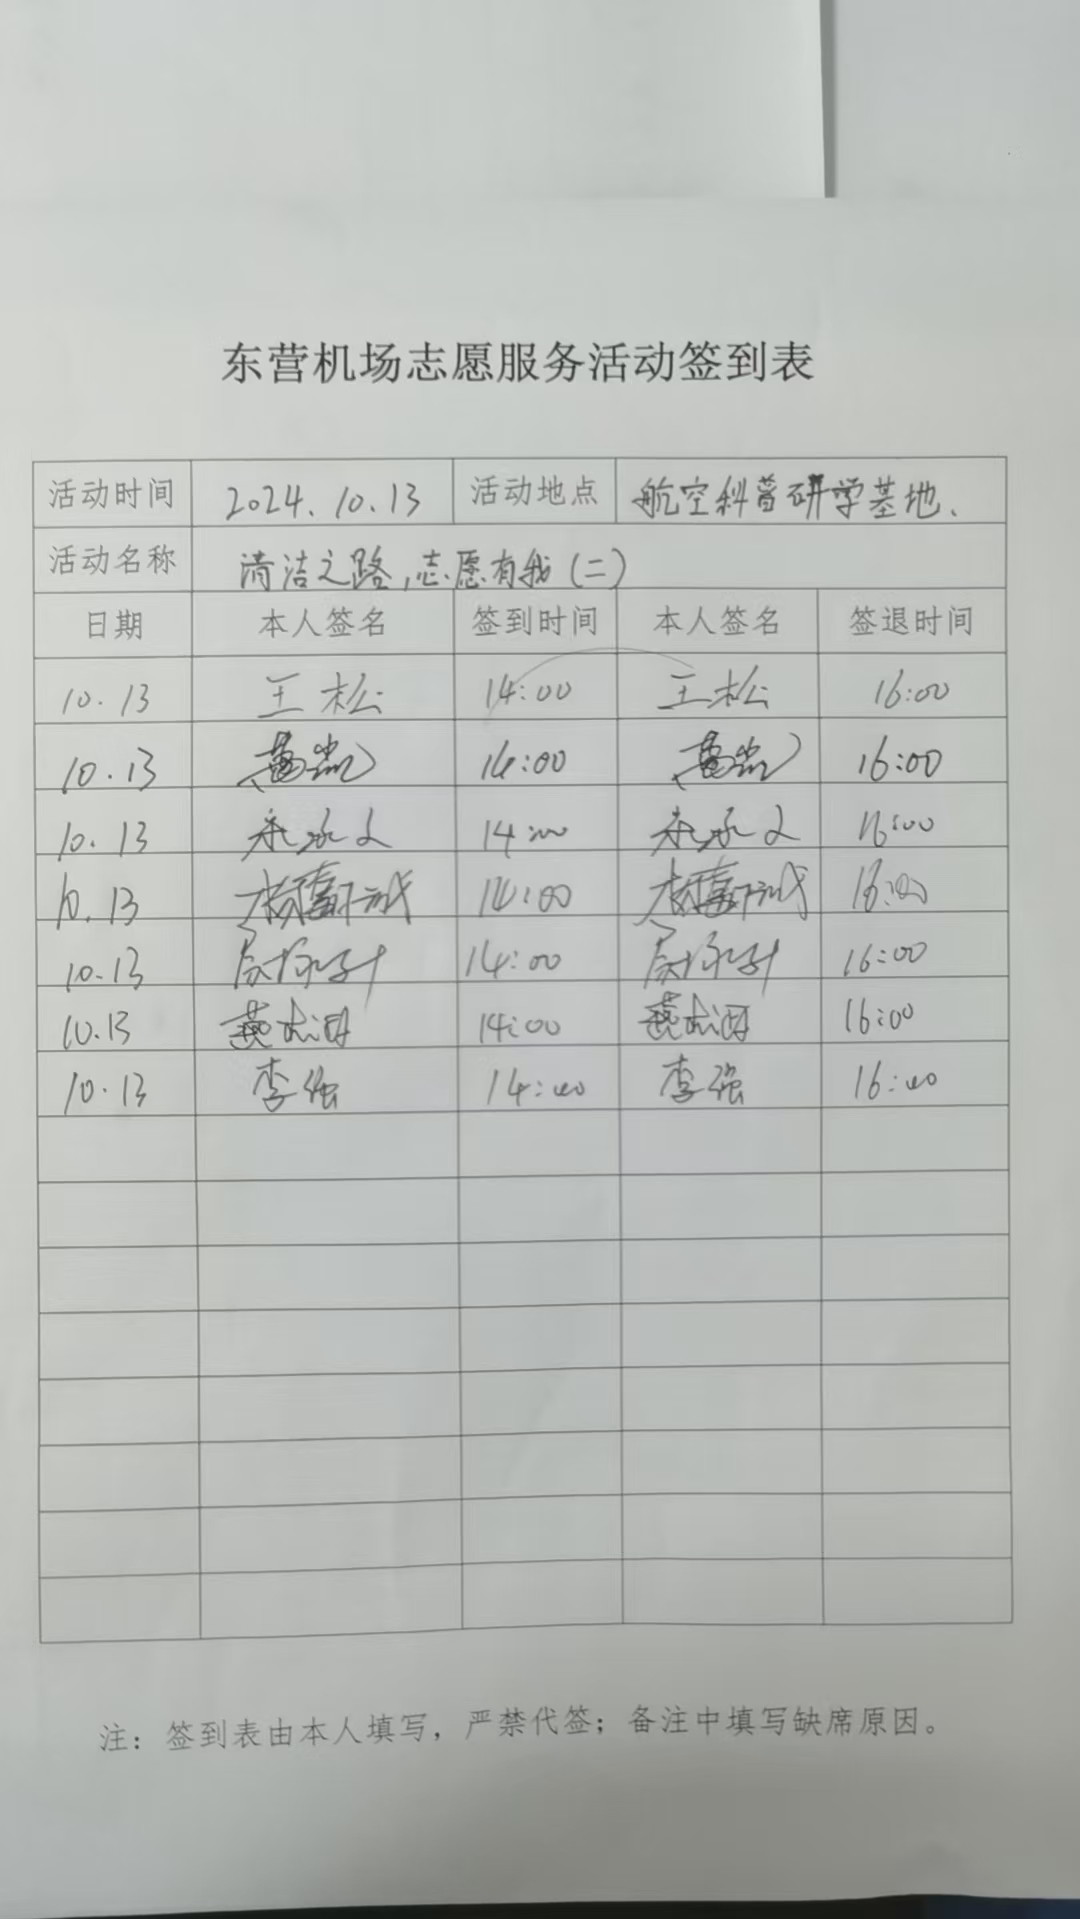 东营机场志愿服务活动签到表
活动时间 2024.10.13 活动地点 航空科普研学基地.
活动名称 清洁之路,志愿有我(二)
日期 本人签名 签到时间 本人签名 签退时间
10.13 王松 14:00 王松 16:00
10.13 14:00 16:00
10.13 14:00 16:00
10.13 14:00 16:00
10.13 14:00 16:00
10.13 14:00 16:00
10.13 李强 14:00 李强 16:00
注：签到表由本人填写，严禁代签；备注中填写缺席原因。